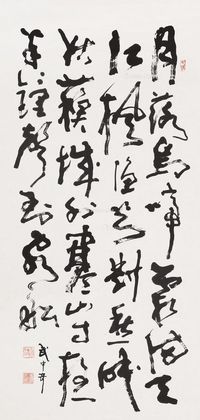 月落烏啼霜滿天
江楓漁火對愁眠
姑蘇城外寒山寺夜
半鐘聲到客船
武中奇